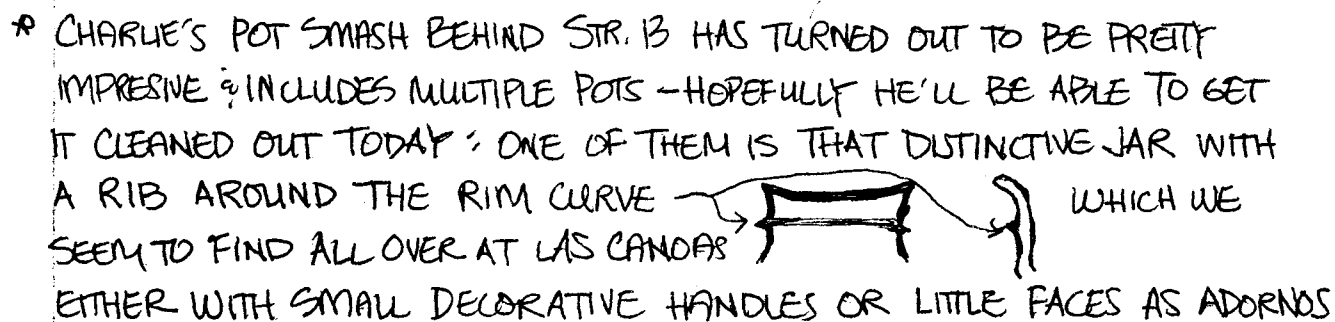 * CHARLIE'S POT SMASH BEHIND STR. 13 HAS TURNED OUT TO BE PRETTY
IMPRESIVE & INCLUDES MULTIPLE POTS - HOPEFULLY HE'LL BE ABLE TO GET
IT CLEANED OUT TODAY: ONE OF THEM IS THAT DISTINCTIVE JAR WITH
A RIB AROUND THE RIM CURVE WHICH WE
SEEM TO FIND ALL OVER AT LAS CANOAS
EITHER WITH SMALL DECORATIVE HANDLES OR LITTLE FACES AS ADORNOS